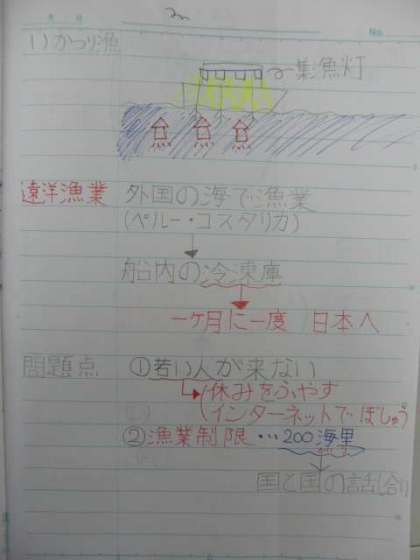 いかつり漁
集魚灯
遠洋漁業 外国の海で漁業
(ペルー・コスタリカ)
船内の冷凍庫
一ケ月に一度 日本へ
問題点 ①若い人が来ない
休みをふやす
インターネットでぼしゅう
②漁業制限…200海里
国と国の話し合い